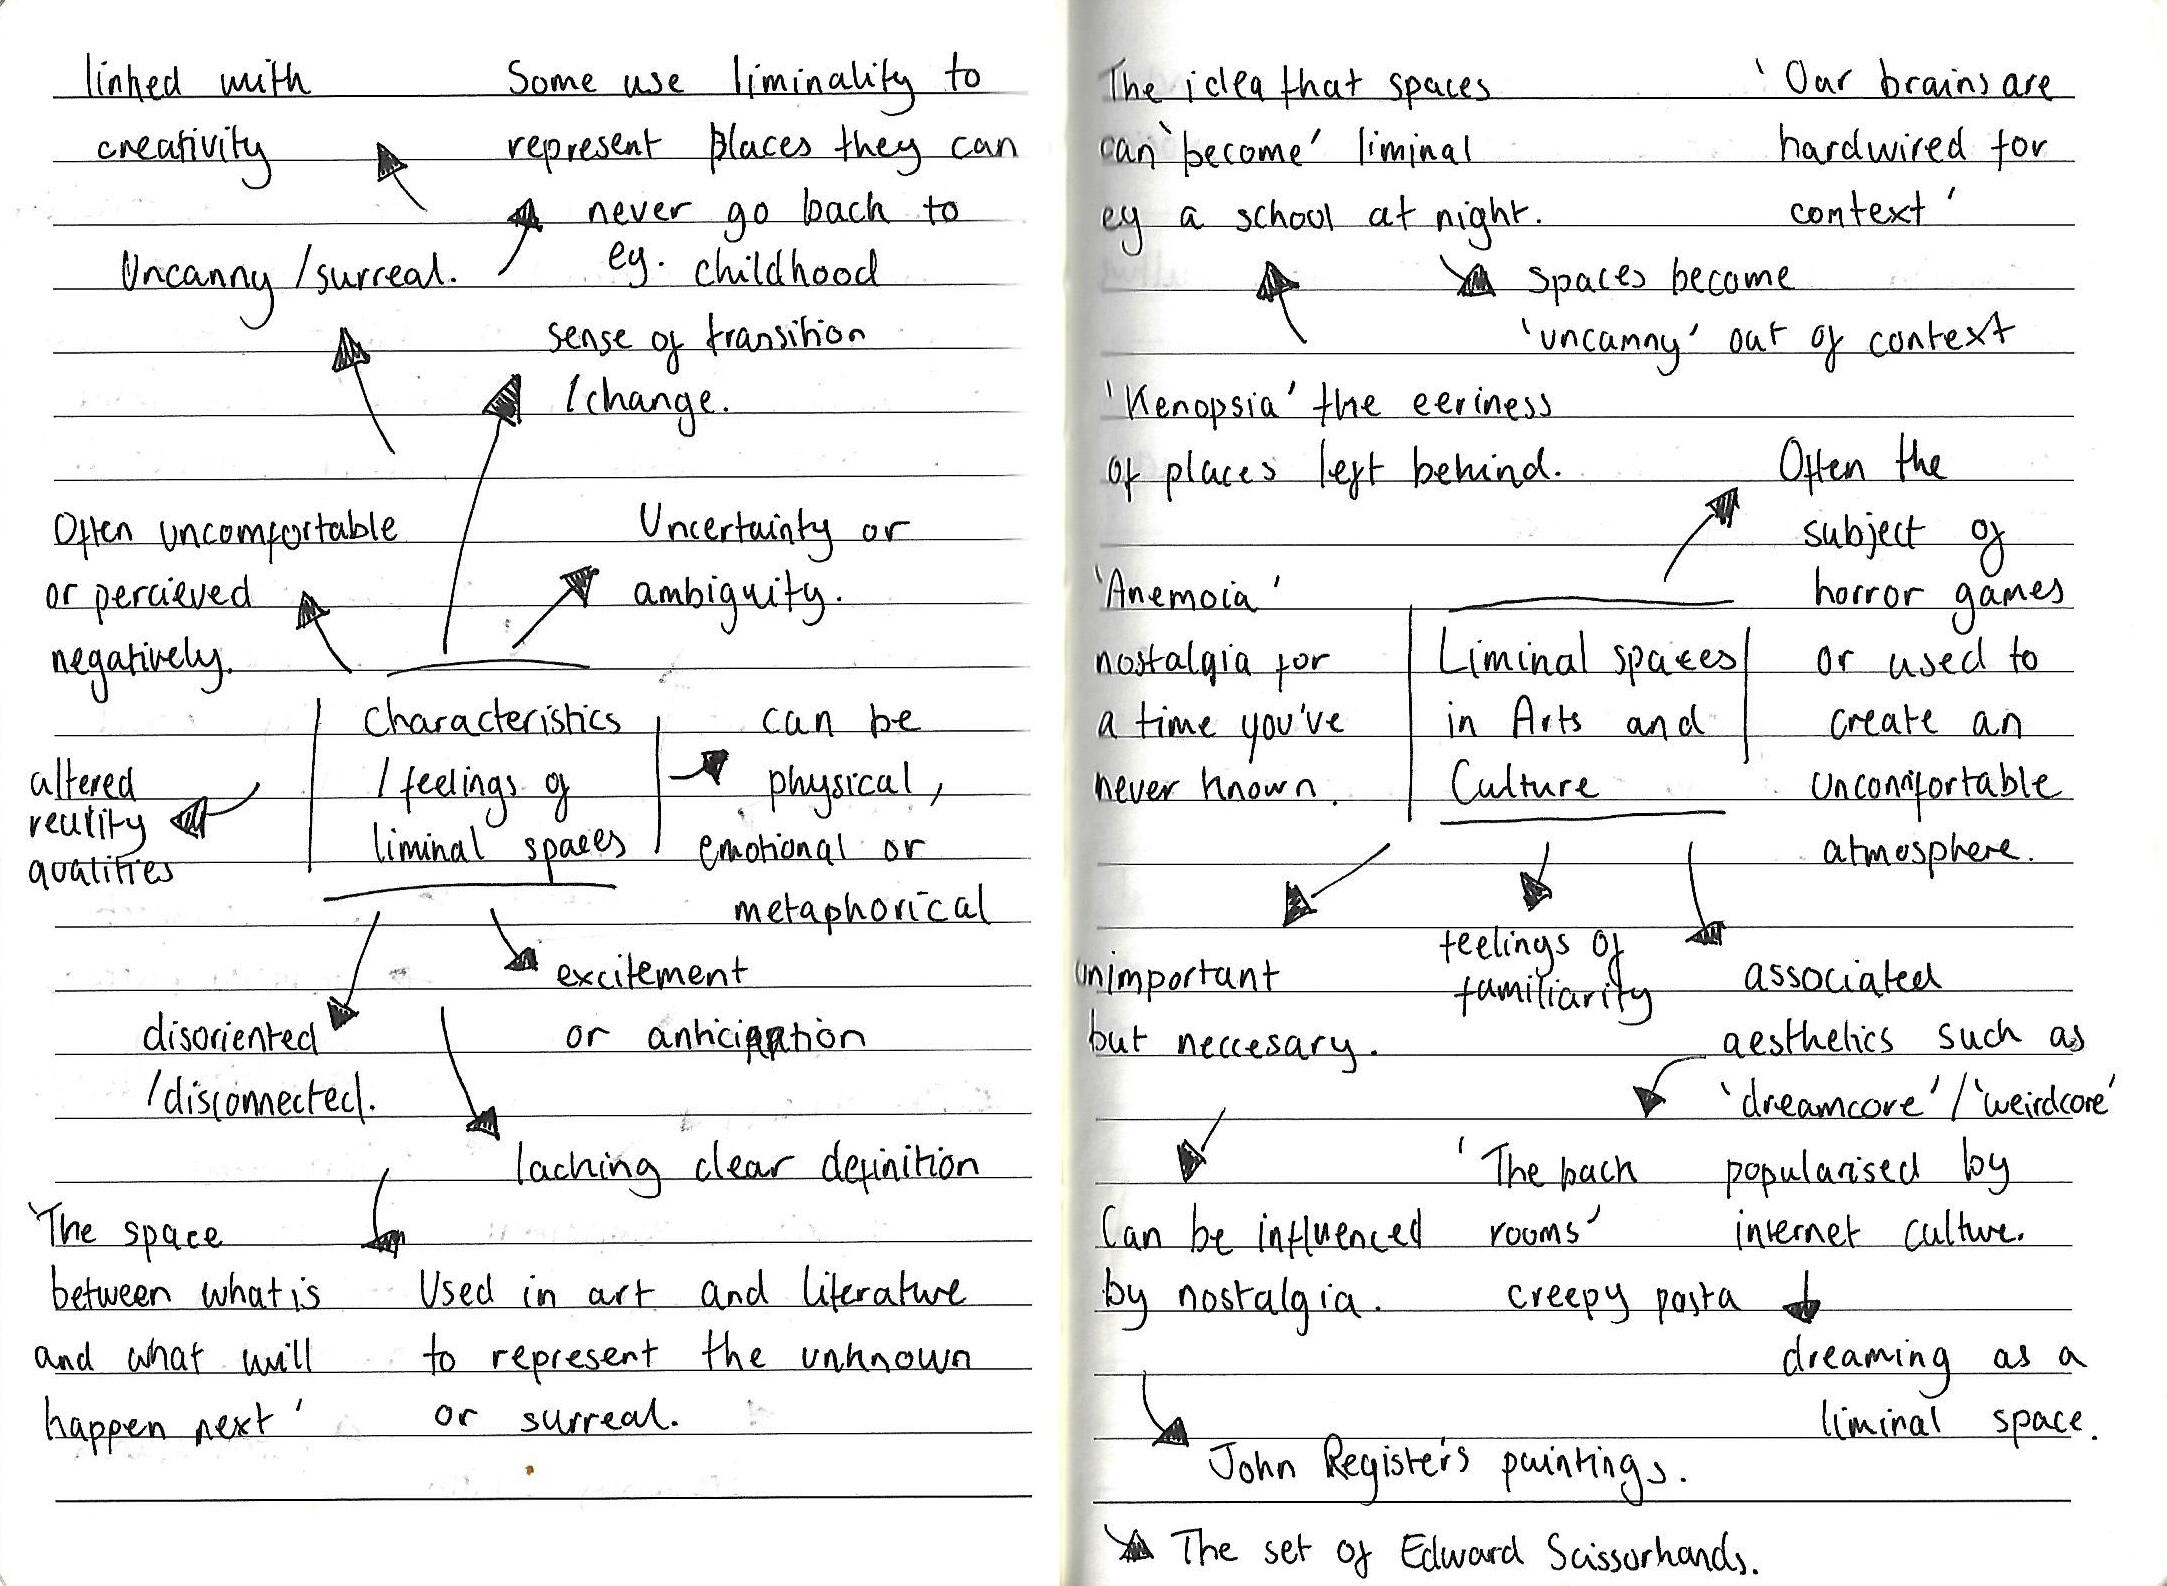 linked with
creativity
Some use liminality to
represent places they can
never go back to
eg. childhood
Uncanny / surreal.
sense of transition
/change.
Often uncomfortable
or percieved
negatively.
Uncertainty or
ambiguity.
Characteristics
/ feelings of
liminal spaces
can be
physical,
emotional or
metaphorical
altered
reality
qualities
excitement
or anticipation
disoriented
/disconnected.
lacking clear definition
'The space
between what is
and what will
happen next'
Used in art and literature
to represent the unknown
or surreal.
The idea that spaces
can 'become' liminal
eg a school at night.
'Our brains are
hardwired for
context'
spaces become
'uncanny' out of context
'Kenopsia' the eeriness
of places left behind.
Often the
subject of
horror games
or used to
create an
uncomfortable
atmosphere.
'Anemoia'
nostalgia for
a time you've
never known.
Liminal spaces
in Arts and
Culture
unimportant
but neccesary.
feelings of
familiarity
associated
aesthetics such as
'dreamcore' / 'weirdcore'
popularised by
internet culture.
'The back
rooms'
creepy pasta
Can be influenced
by nostalgia.
dreaming as a
liminal space.
John Register's paintings.
The set of Edward Scissorhands.